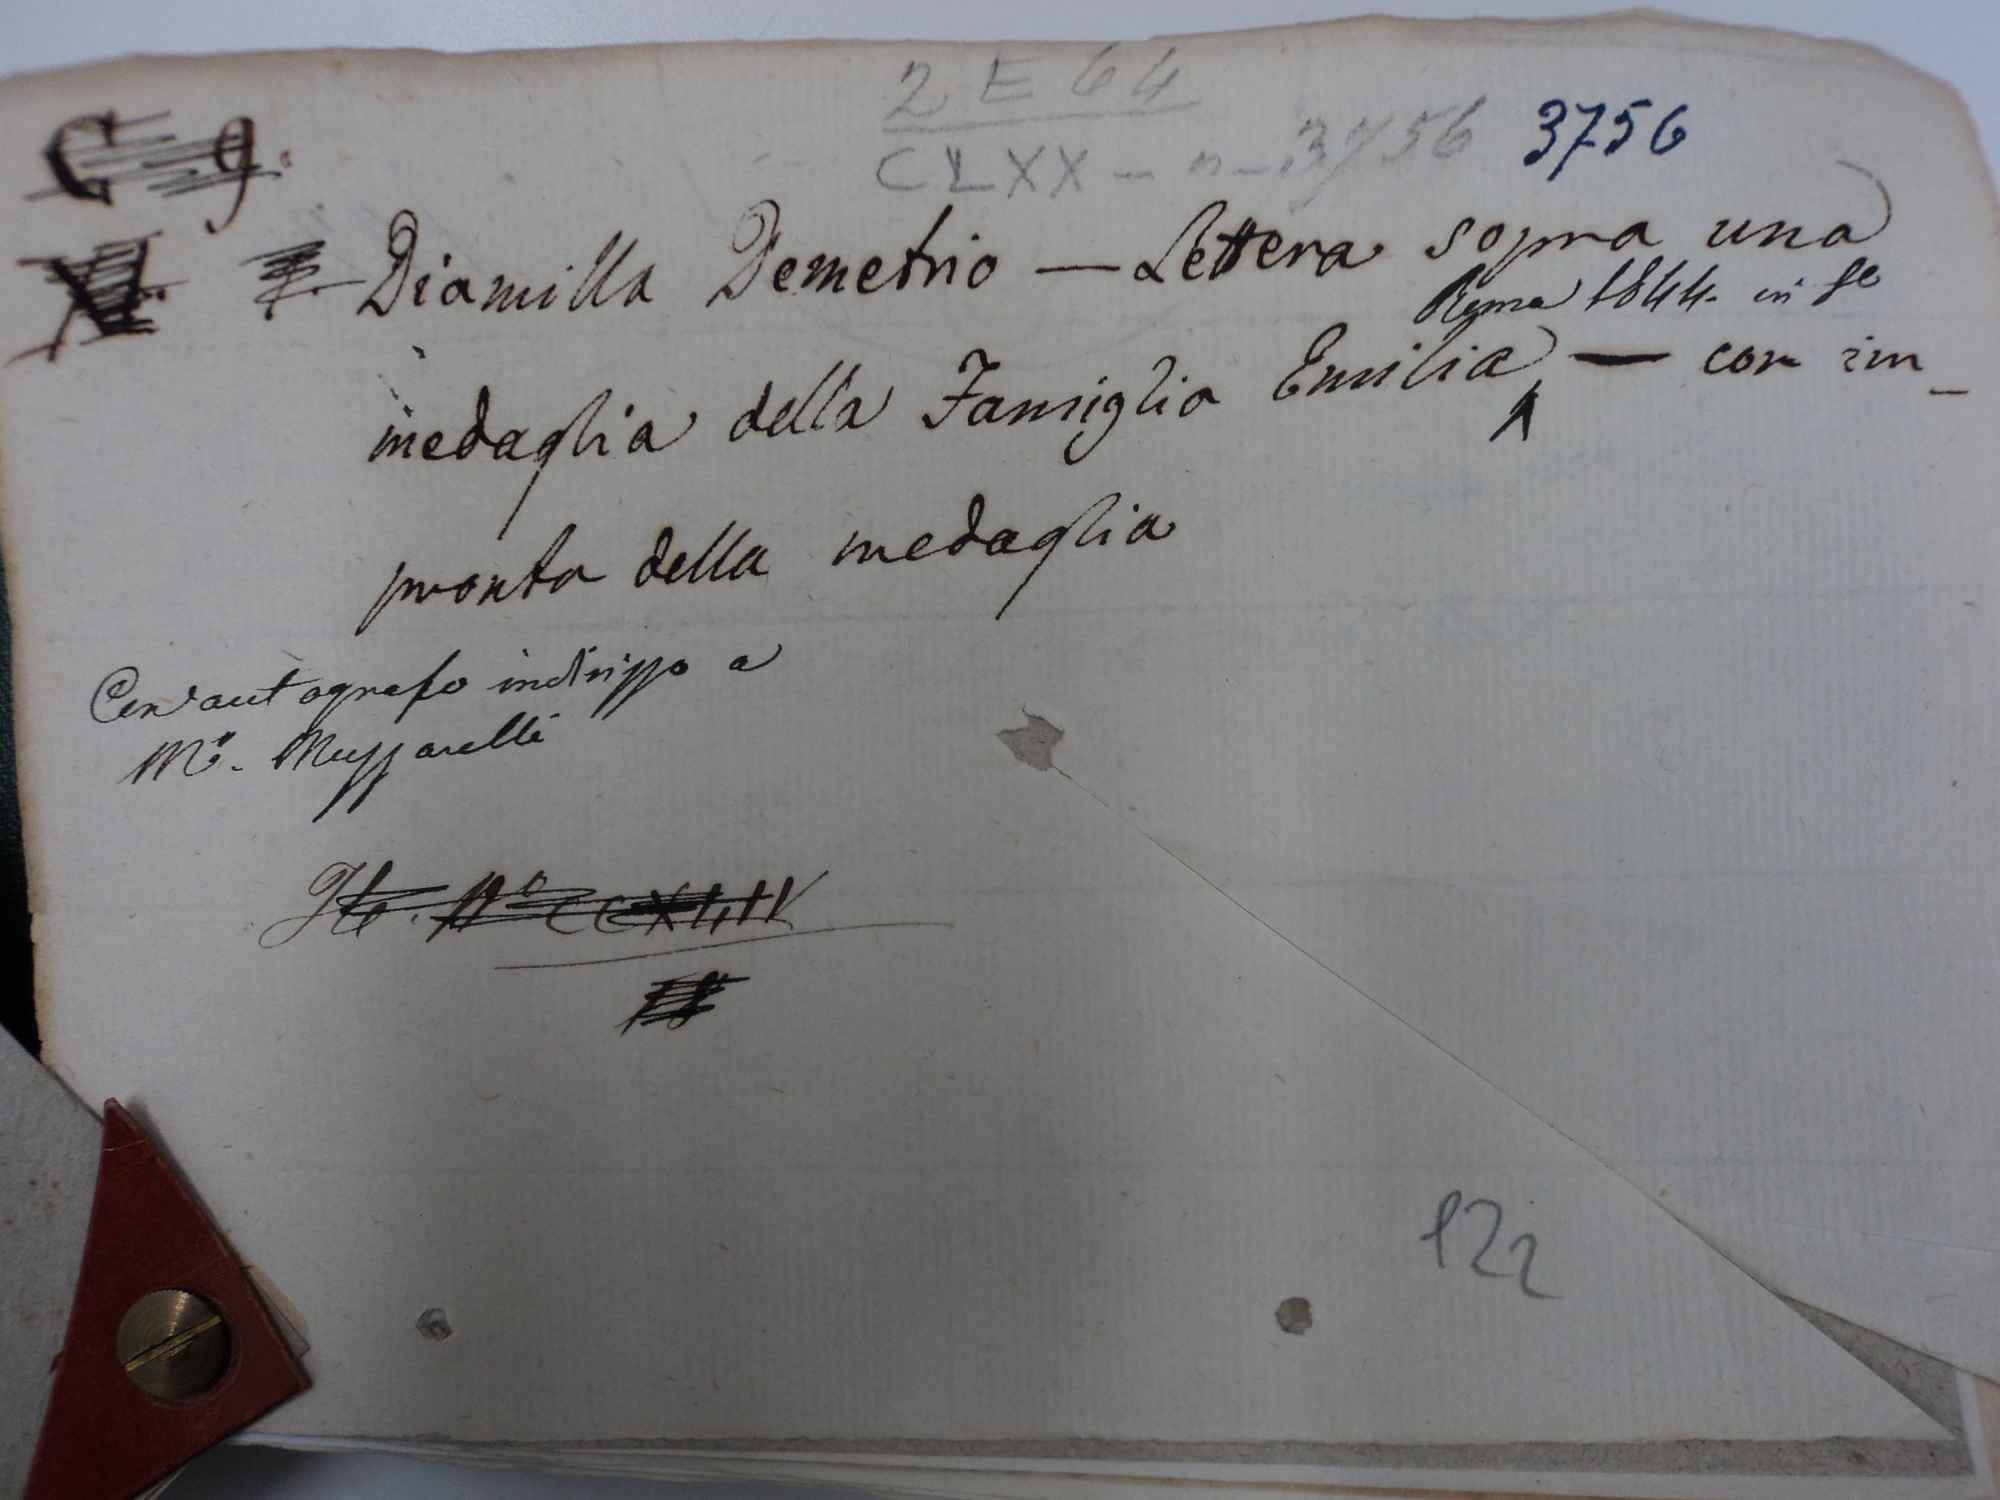 2 E 64
C 9.
CLXX - n - 3756 3756
Diamilla Demetrio — Lettera sopra una
Roma 1844. in 8o
medaglia della Famiglia Emilia — con im_
pronta della medaglia
Con autografo indirizzo a
Mr. Muzzarelli
122